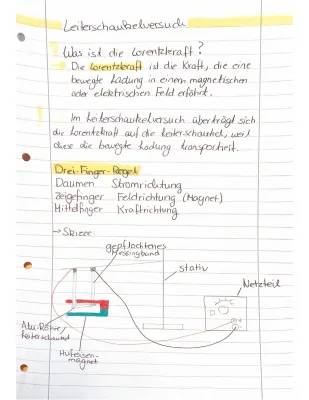 Leiterschaukelversuch
Was ist die Lorentzkraft?
Die Lorentzkraft ist die Kraft, die eine
bewegte Ladung in einem magnetischen
oder elektrischen Feld erfährt.
Im Leiterschaukelversuch überträgt sich
die Lorentzkraft auf die Leiterschaukel, weil
diese die bewegte Ladung transportiert.
Drei-Finger-Regel
Daumen Stromrichtung
Zeigefinger Feldrichtung (Magnet)
Mittelfinger Kraftrichtung
→ Skizze
geflochtenes
Messingband
stativ
Netzteil
Alu-Rohr/
Leiterschaukel
Hufeisen-
magnet